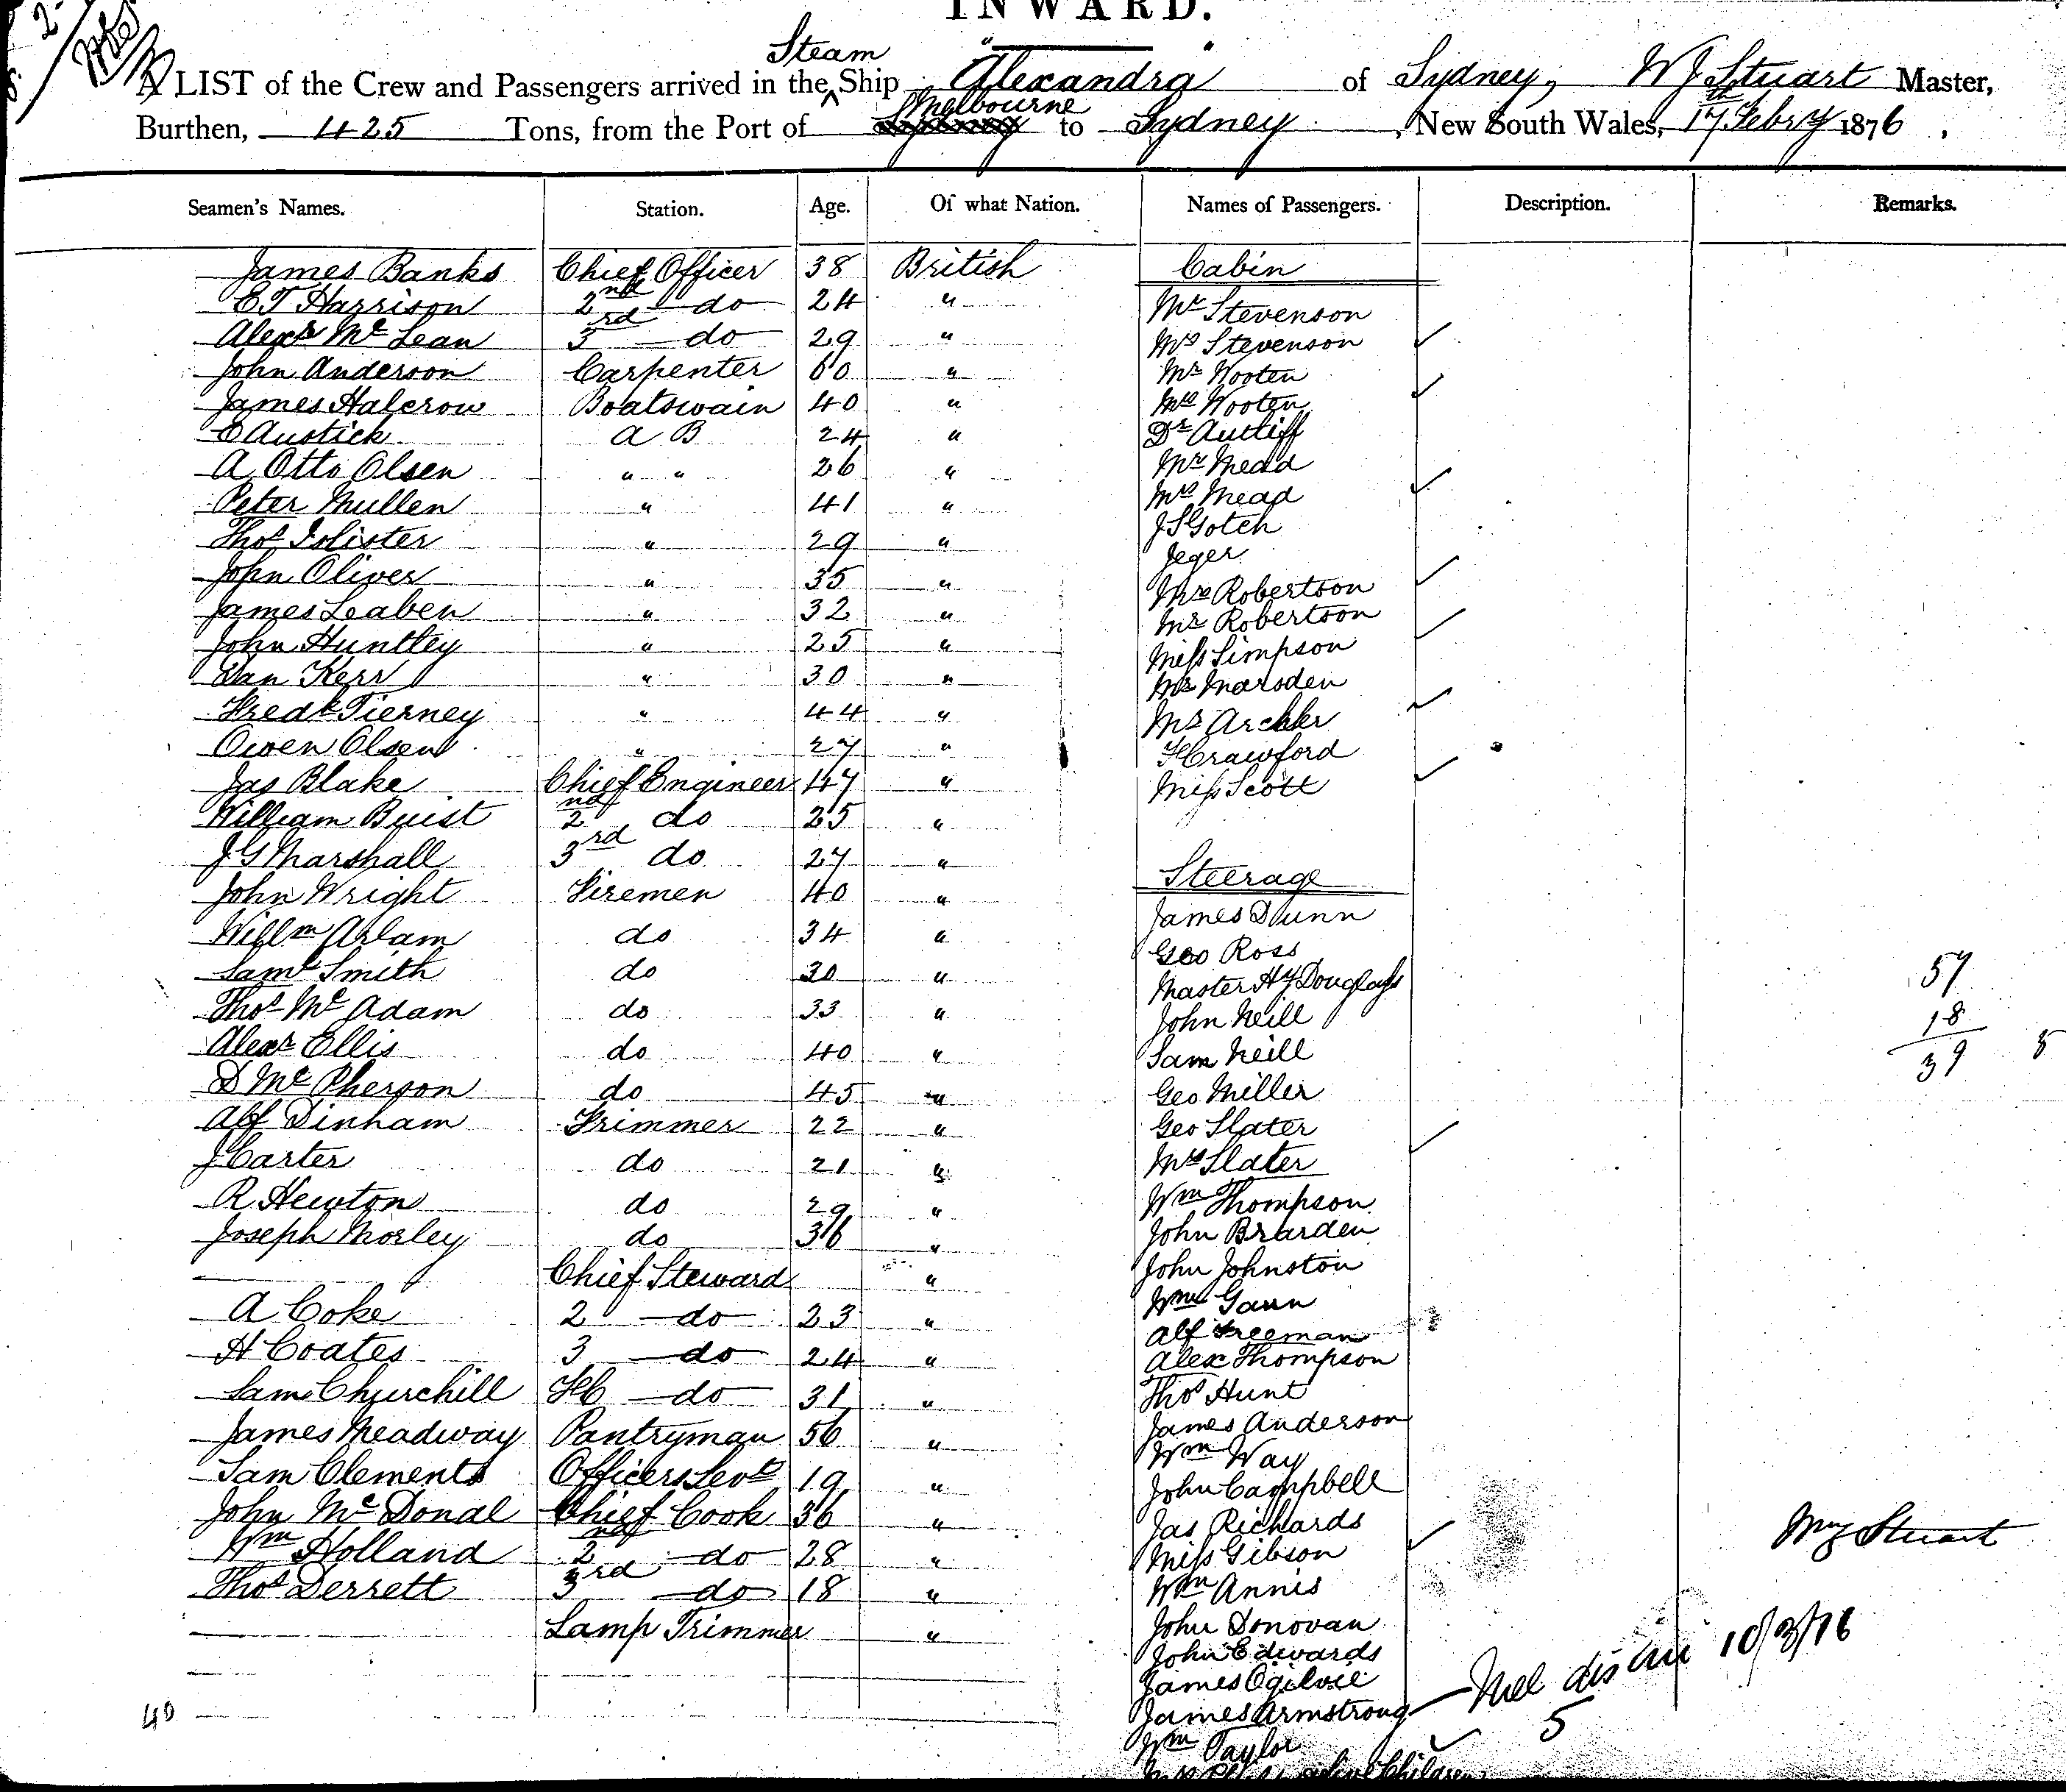 INWARD.
Steam
A LIST of the Crew and Passengers arrived in the ^ Ship "Alexandra" of Sydney, W J Stuart Master,
Melbourne
Burthen, 425 Tons, from the Port of Sydney to Sydney, New South Wales, 17th Febry 1876.
Seamen's Names. Station. Age. Of what Nation. Names of Passengers. Description. Remarks.
James Banks Chief Officer 38 British Cabin
E T Harrison 2nd do 24 " Mr Stevenson
Alexr Mc Lean 3rd do 29 " Mrs Stevenson ✓
John Anderson Carpenter 60 " Mr Wooten
James Halcrow Boatswain 40 " Mrs Wooten ✓
E Austick A B 24 " Dr
A Otto Olsen " " 26 " Mr Mead
Peter Mullen " 41 " Mrs Mead ✓
Thos Islister " 29 " J S Gotch
John Oliver " 35 " Jeger
James Leaben " 32 " Mrs Robertson ✓
John Huntley " 25 " Mr Robertson
Dan Kerr " 30 " Miss Simpson ✓
Fredk Tierney " 44 " Mr Marsden
Owen Olsen " 27 " Mr Archer ✓
Jas Blake Chief Engineer 47 " H Crawford
William Buist 2nd do 25 " Miss Scott ✓
J G Marshall 3rd do 27 "
John Wright Firemen 40 " Steerage
Willm Arlam do 34 " James Dunn
Saml Smith do 30 " Geo Ross
Thos Mc Adam do 33 " Master Hy Douglass 57
Alexr Ellis do 40 " John Neill 18
D Mc Pherson do 45 " Sam Neill 39
Alf Dinham Trimmer 22 " Geo Miller
J Carter do 21 " Geo Slater
R Hewton do 29 " Mrs Slater ✓
Joseph Morley do 36 " Wm Thompson
Chief Steward " John Brarden
A Coke 2 do 23 " John Johnston
H Coates 3 do 24 " Wm Gann
Sam Churchill FC do 31 " Alf Freeman
James Meadway Pantryman 56 " Alex Thompson
Sam Clements Officers Sevt 19 " Thos Hunt
John Mc Donal Chief Cook 36 " James Anderson
Wm Holland 2nd do 28 " Wm Way
Thos Derrett 3rd do 18 " John Campbell
Lamp Trimmer " Jas Richards
Miss Gibson ✓
Wm Annis
John Donovan
John Edwards
James Ogilvie
James Armstrong
Wm Taylor ✓
Children
Stuart
10/3/76
5
40